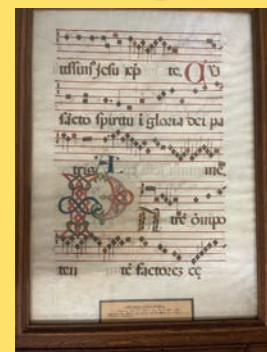 tissim' Jesu xp̄ te. Cū
sācto spiritu i gloria dei pa
tris. A mē.
P trē ōmipo
ten tē factorez ce